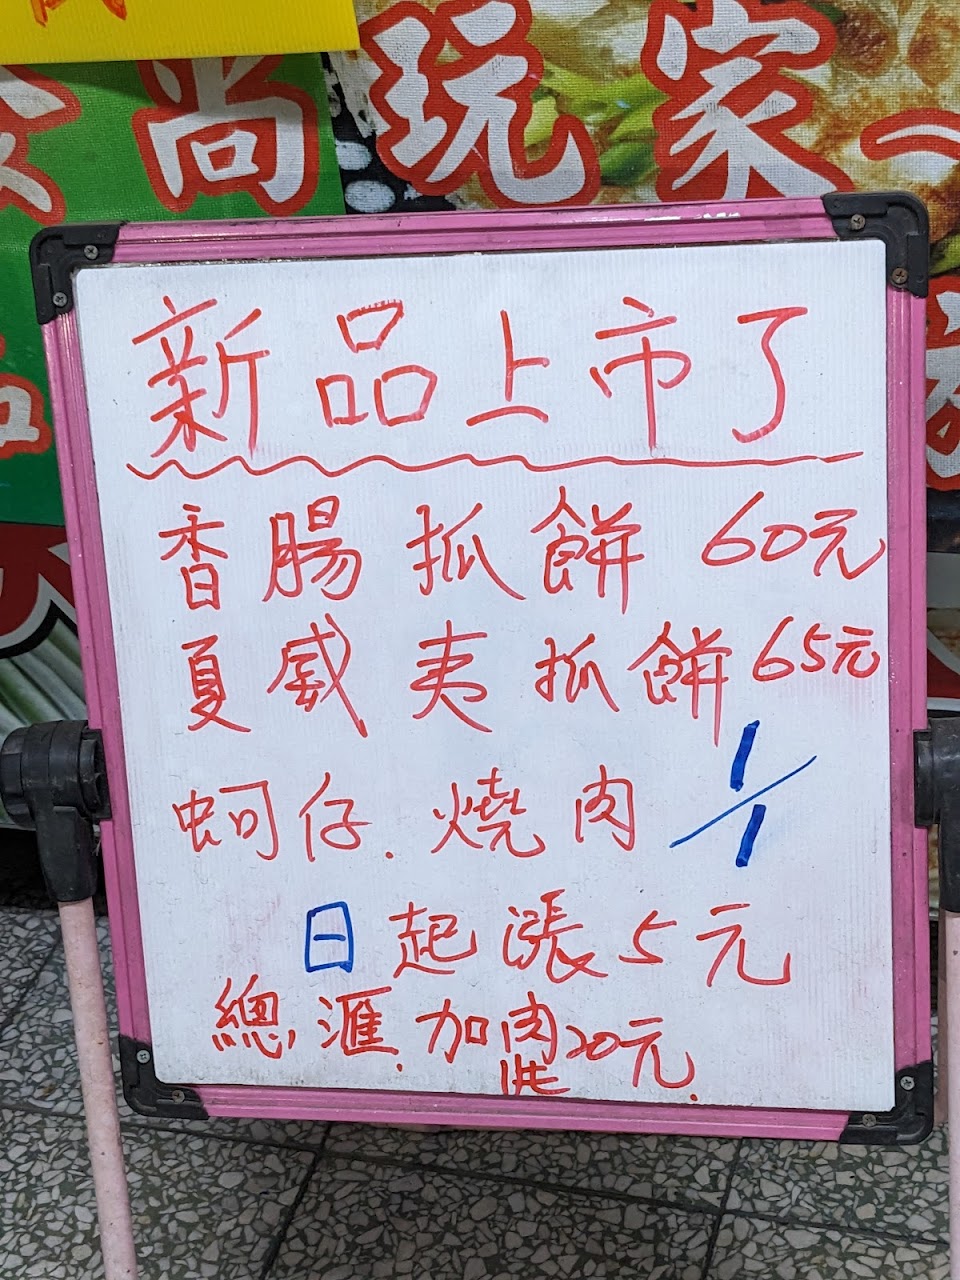 尚玩家
新品上市了
香腸抓餅 60元
夏威夷抓餅 65元
蚵仔.燒肉 1/1
日起漲5元
總滙.加肉20元.